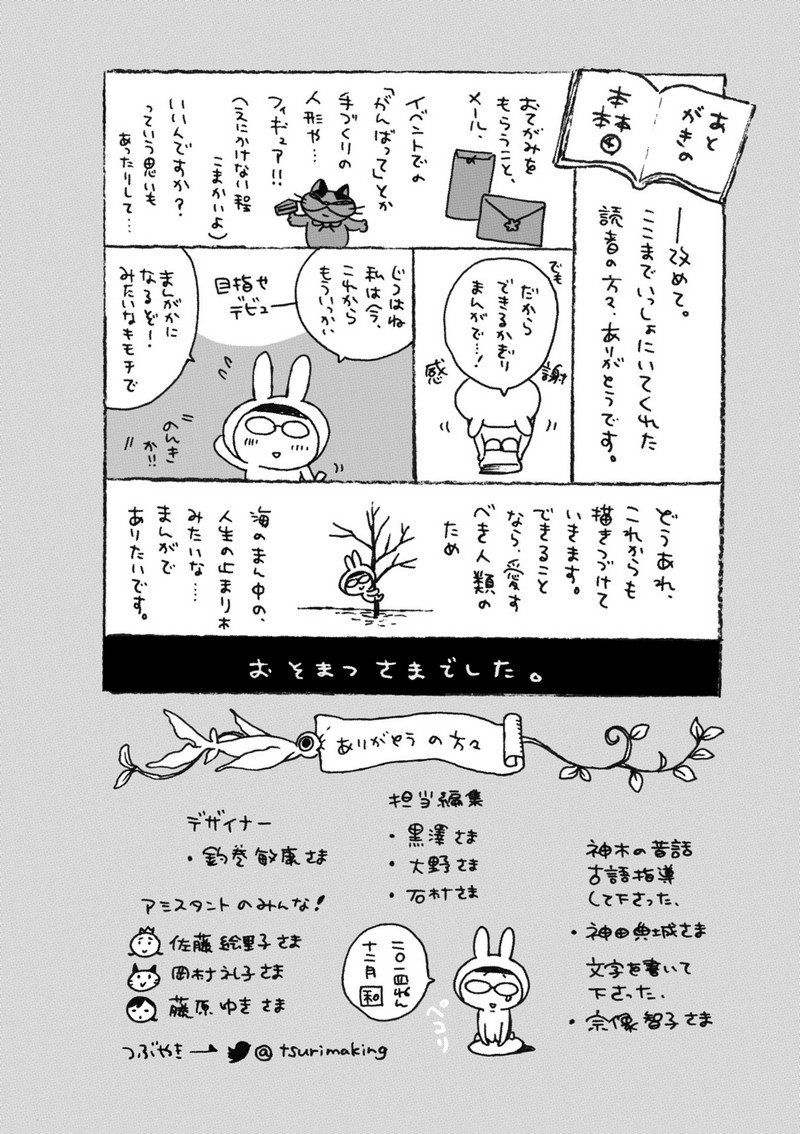 あと
がきの
本本
本④
──改めて。
ここまでいっしょにいてくれた
読者の方々、ありがとうです。
おてがみを
もらうこと、
メール、
イベントでの
「がんばって」とか
手づくりの
人形や…
フィギュア!!
(えにかけない程
こまかいよ)
いいんですか?
っていう思いも
あったりして…
でも
だから
できるかぎり
まんがで…!
感
謝
じつはね
私は今、
これから
もういっかい
目指せ
デビュー
まんがかに
なるぞー!
みたいなキモチで
のんき
か!!
どうあれ、
これからも
描きつづけて
いきます。
できること
なら、愛す
べき人類の
ため
海のまん中の、
人生の止まり木
みたいな…
まんがで
ありたいです。
おそまつさまでした。
ありがとうの方々
デザイナー
・釣巻敏康さま
担当編集
・黒澤さま
・大野さま
・石村さま
アミスタントのみんな!
佐藤絵里子さま
岡村えし子さま
藤原ゆきさま
つぶやき─→@tsurimaking
神木の昔話
古語指導
して下さった、
・神田典城さま
文字を書いて
下さった、
・宗像智子さま
二〇一四ねん
十二月 和